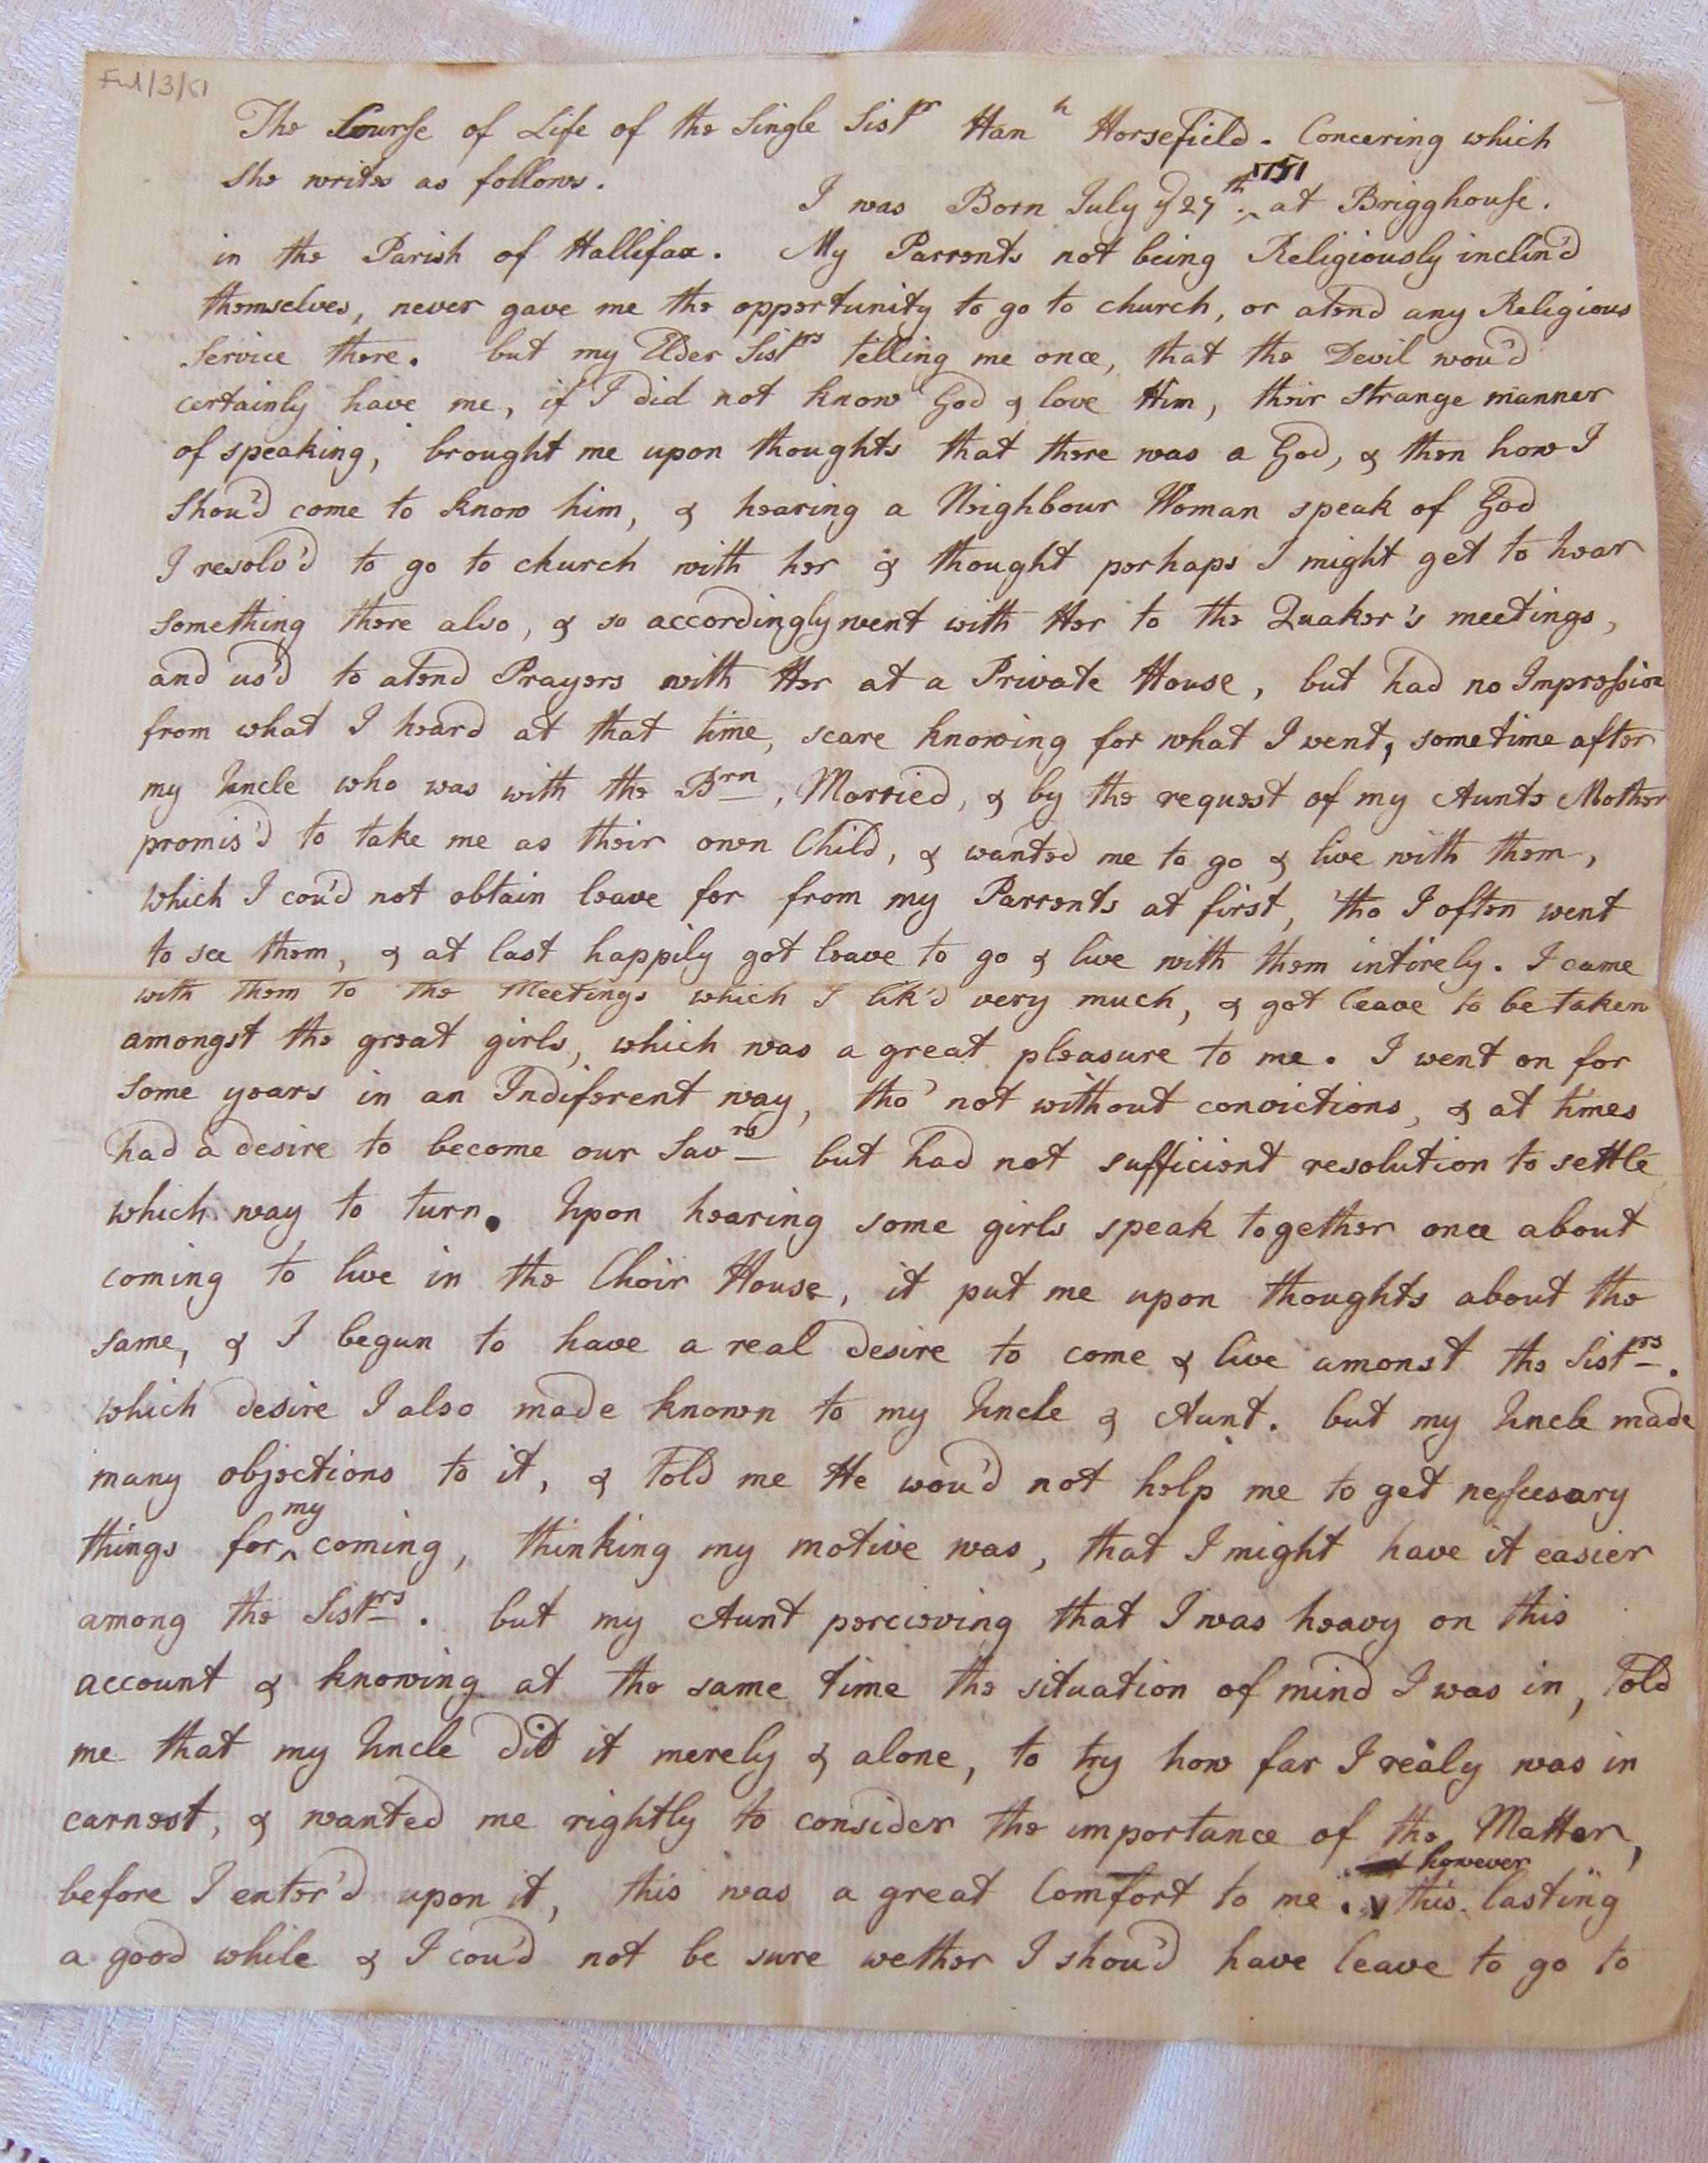 The Course of Life of the Single Sistr Hanh Horsefield. Concering which
She writes as follows.
I was Born July ye 27th 1751 at Brigghouse.
in the Parish of Hallifax. My Parrents not being Religiously inclin'd
themselves, never gave me the opportunity to go to church, or atend any Religious
Service there. but my Elder Sistrs telling me once, that the Devil wou'd
certainly have me, if I did not know God & love Him, their strange manner
of speaking, brought me upon thoughts that there was a God, & then how I
shou'd come to know him, & hearing a Neighbour Woman speak of God
I resolv'd to go to church with her & thought perhaps I might get to hear
something there also, & so accordingly went with Her to the Quaker's meetings,
and us'd to atend Prayers with Her at a Private House, but had no Impression
from what I heard at that time, scare knowing for what I went, sometime after
my Uncle who was with the Brn, Married, & by the request of my Aunts Mother
promis'd to take me as their own Child, & wanted me to go & live with them,
which I cou'd not obtain leave for from my Parrents at first, 'tho I often went
to see them, & at last happily got leave to go & live with them intirely. I came
with them to the Meetings which I lik'd very much, & got leave to be taken
amongst the great girls, which was a great pleasure to me. I went on for
some years in an Indiferent way, tho' not without convictions, & at times
had a desire to become our Savrs but had not sufficient resolution to settle
which way to turn. Upon hearing some girls speak together once about
coming to live in the Choir House, it put me upon thoughts about the
same, & I begun to have a real desire to come & live amonst the Sistrs.
which desire I also made known to my Uncle & Aunt. but my Uncle made
many objections to it, & told me He wou'd not help me to get nescesary
things for my coming, thinking my motive was, that I might have it easier
among the Sistrs. but my Aunt percieving that I was heavy on this
account & knowing at the same time the situation of mind I was in, told
me that my Uncle did it merely & alone, to try how far I realy was in
earnest, & wanted me rightly to consider the importance of the Matter,
before I enter'd upon it, this was a great Comfort to me. however this lasting
a good while & I cou'd not be sure wether I shou'd have leave to go to